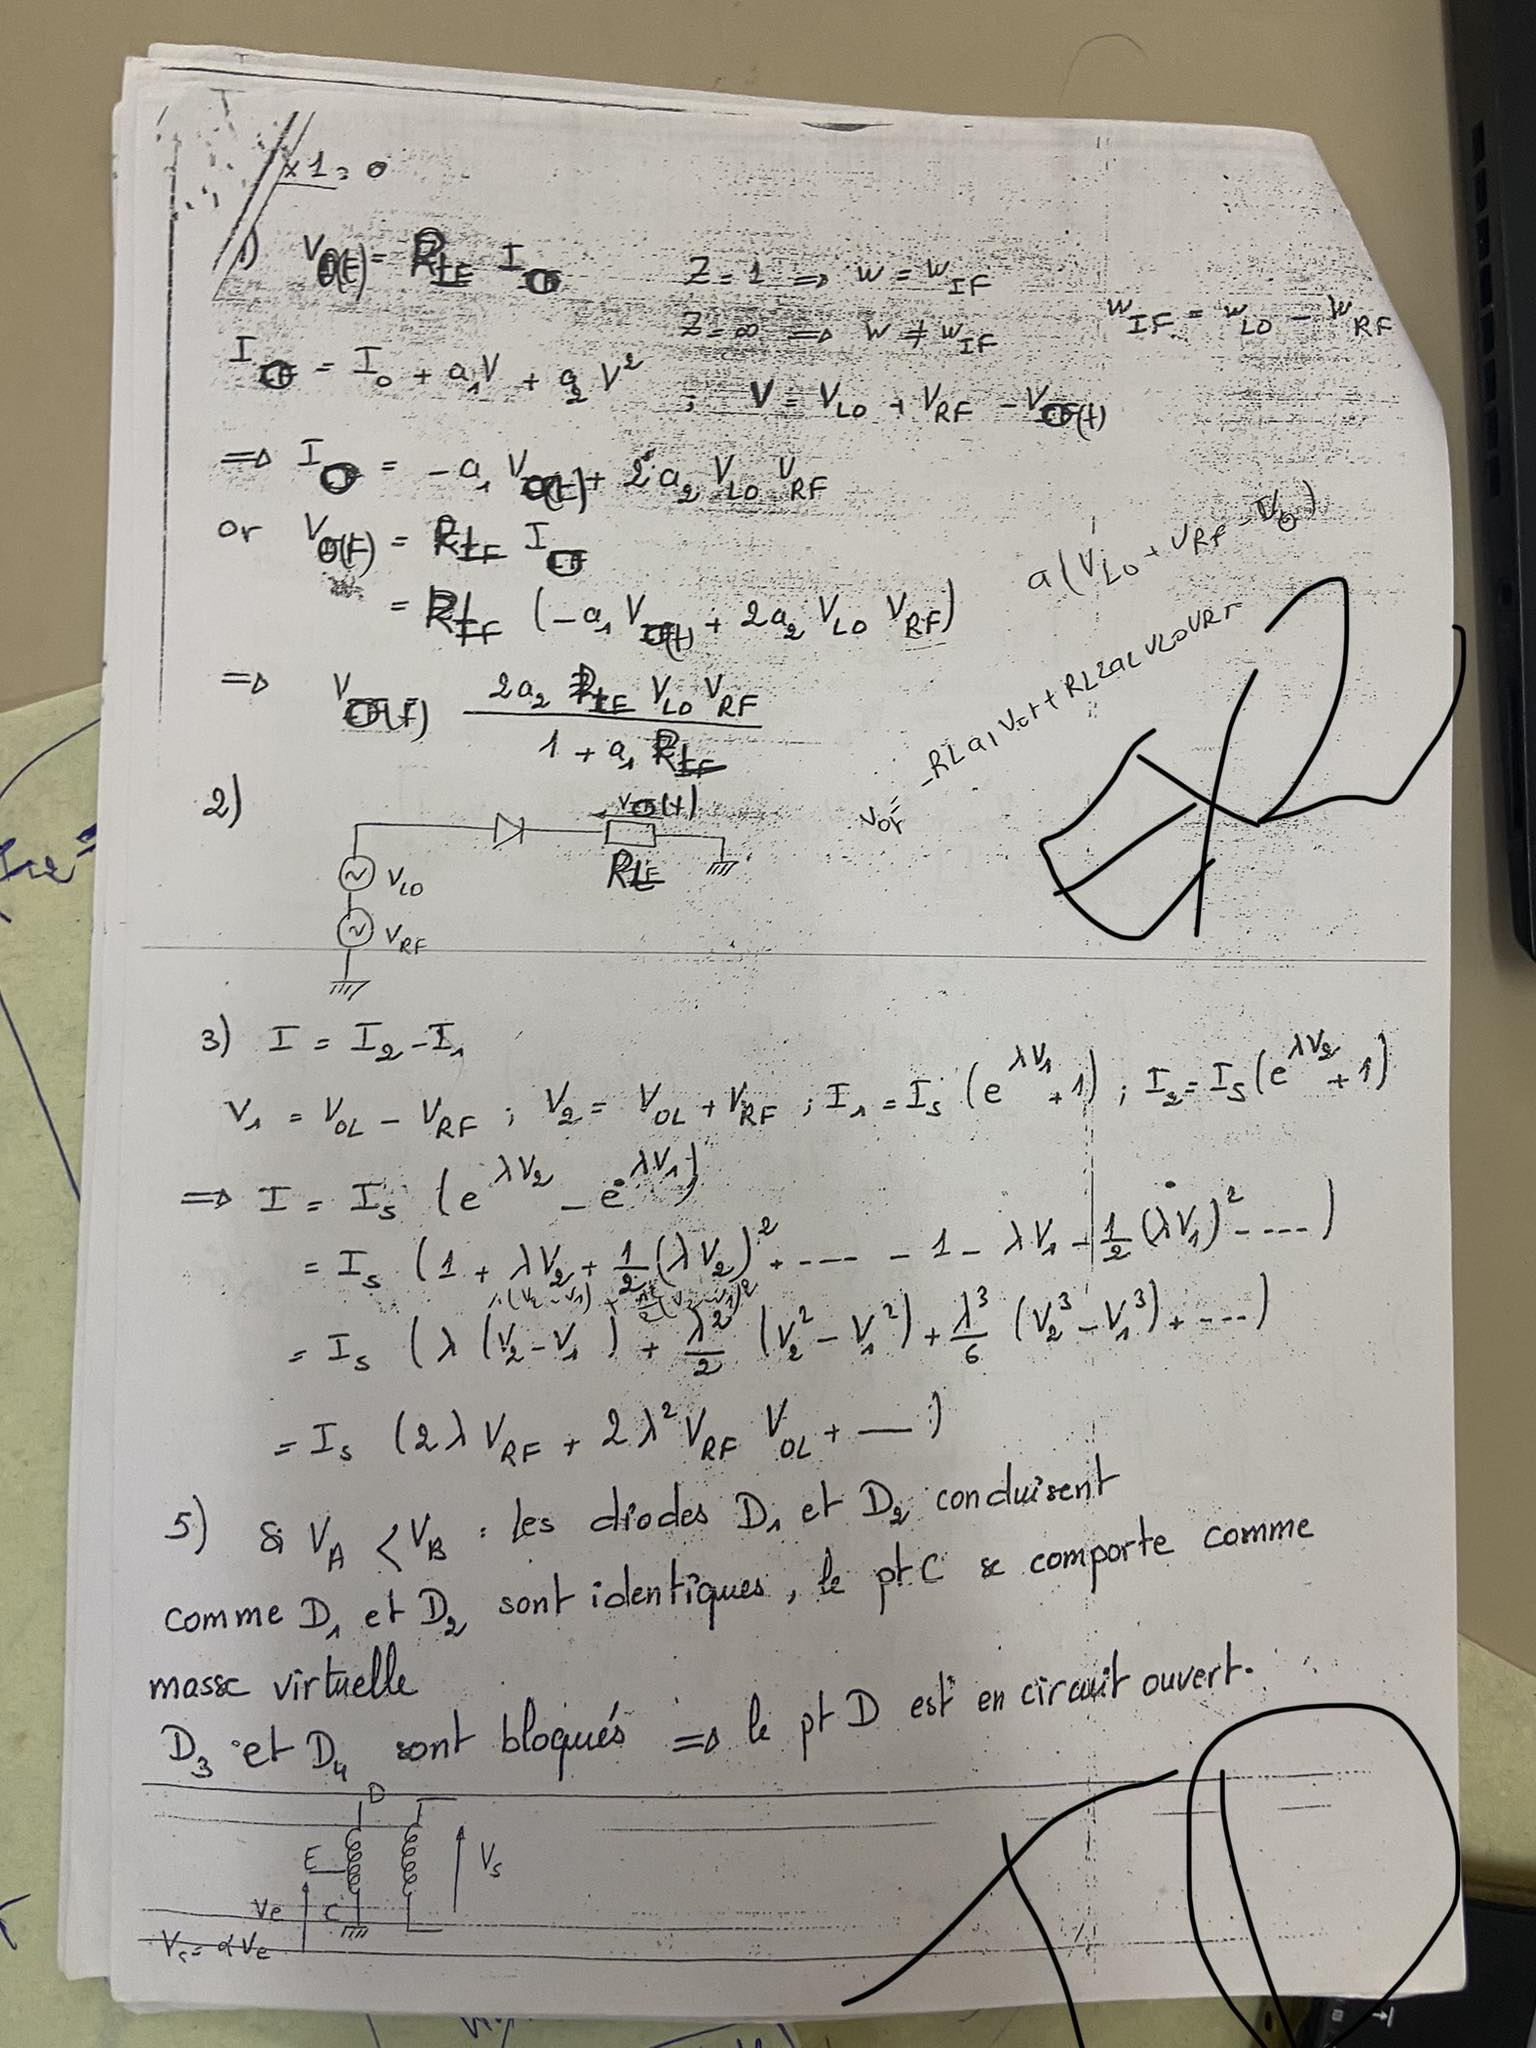 x 1 = 0
1) V0(t) = RL I0
Z = 1 ⇒ w = wIF
Z = ∞ ⇒ w ≠ wIF
wIF = wLO - wRF
I = I0 + a1V + a2 V² ; V = VLO + VRF - V0(t)
⇒ I0 = - a1 V0(t) + 2 a2 VLO VRF
or V0(t) = RL I0
= RL (- a1 V0(t) + 2a2 VLO VRF)
a(VLO + VRF - V0)
⇒ V0(t) 2a2 RL VLO VRF / 1 + a1 RL
= -RL a1 + RL 2a VLO VRF
2)
V0(t)
RL
VLO
VRF
3) I = I2 - I1
V1 = VOL - VRF ; V2 = VOL + VRF ; I1 = Is (e^λV1 + 1) ; I2 = Is (e^λV2 + 1)
⇒ I = Is (e^λV2 - e^λV1)
= Is (1 + λV2 + 1/2 (λV2)² + ---- - 1 - λV1 - 1/2 (λV1)² - ----)
= Is (λ (V2 - V1) + λ²/2 (V2² - V1²) + λ³/6 (V2³ - V1³) + ---)
= Is (2λ VRF + 2λ² VRF VOL + —)
5) Si VA < VB : les diodes D1 et D2 conduisent
comme D1 et D2 sont identiques, le pt C se comporte comme
masse virtuelle
D3 et D4 sont bloqués ⇒ le pt D est en circuit ouvert.
D
E
Vs
Ve
C
Vs = αVe